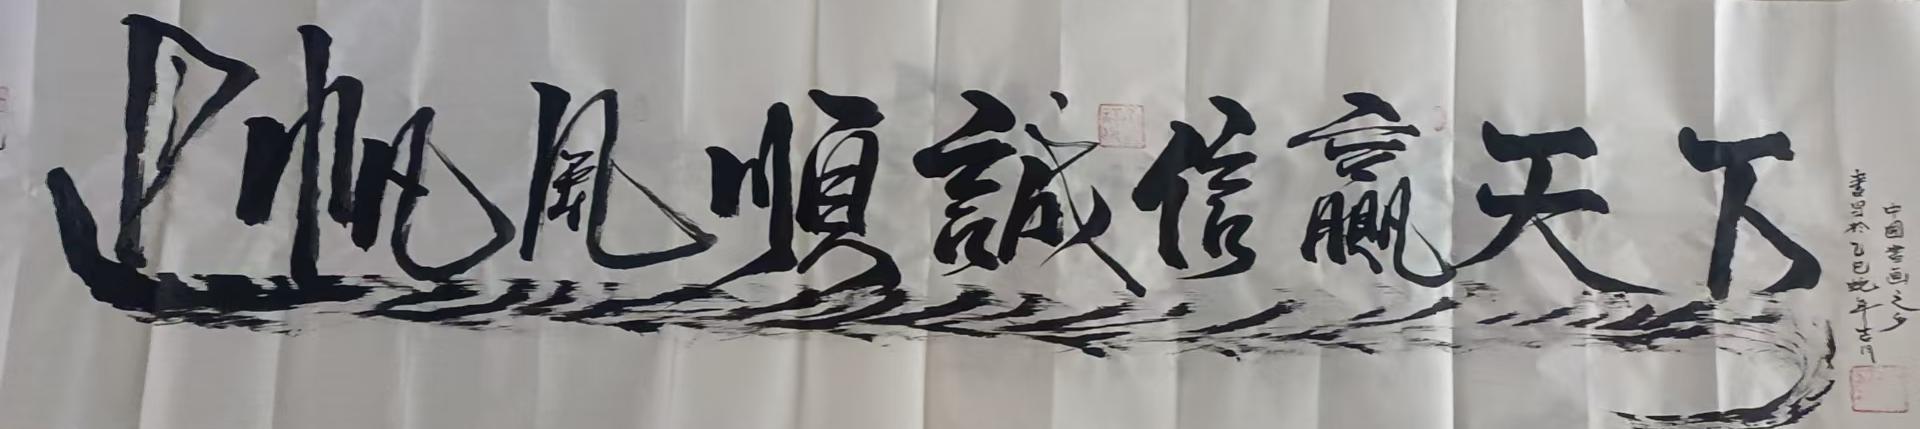 一帆風順誠信贏天下
中國書画之乡
書写於乙巳蛇年吉月